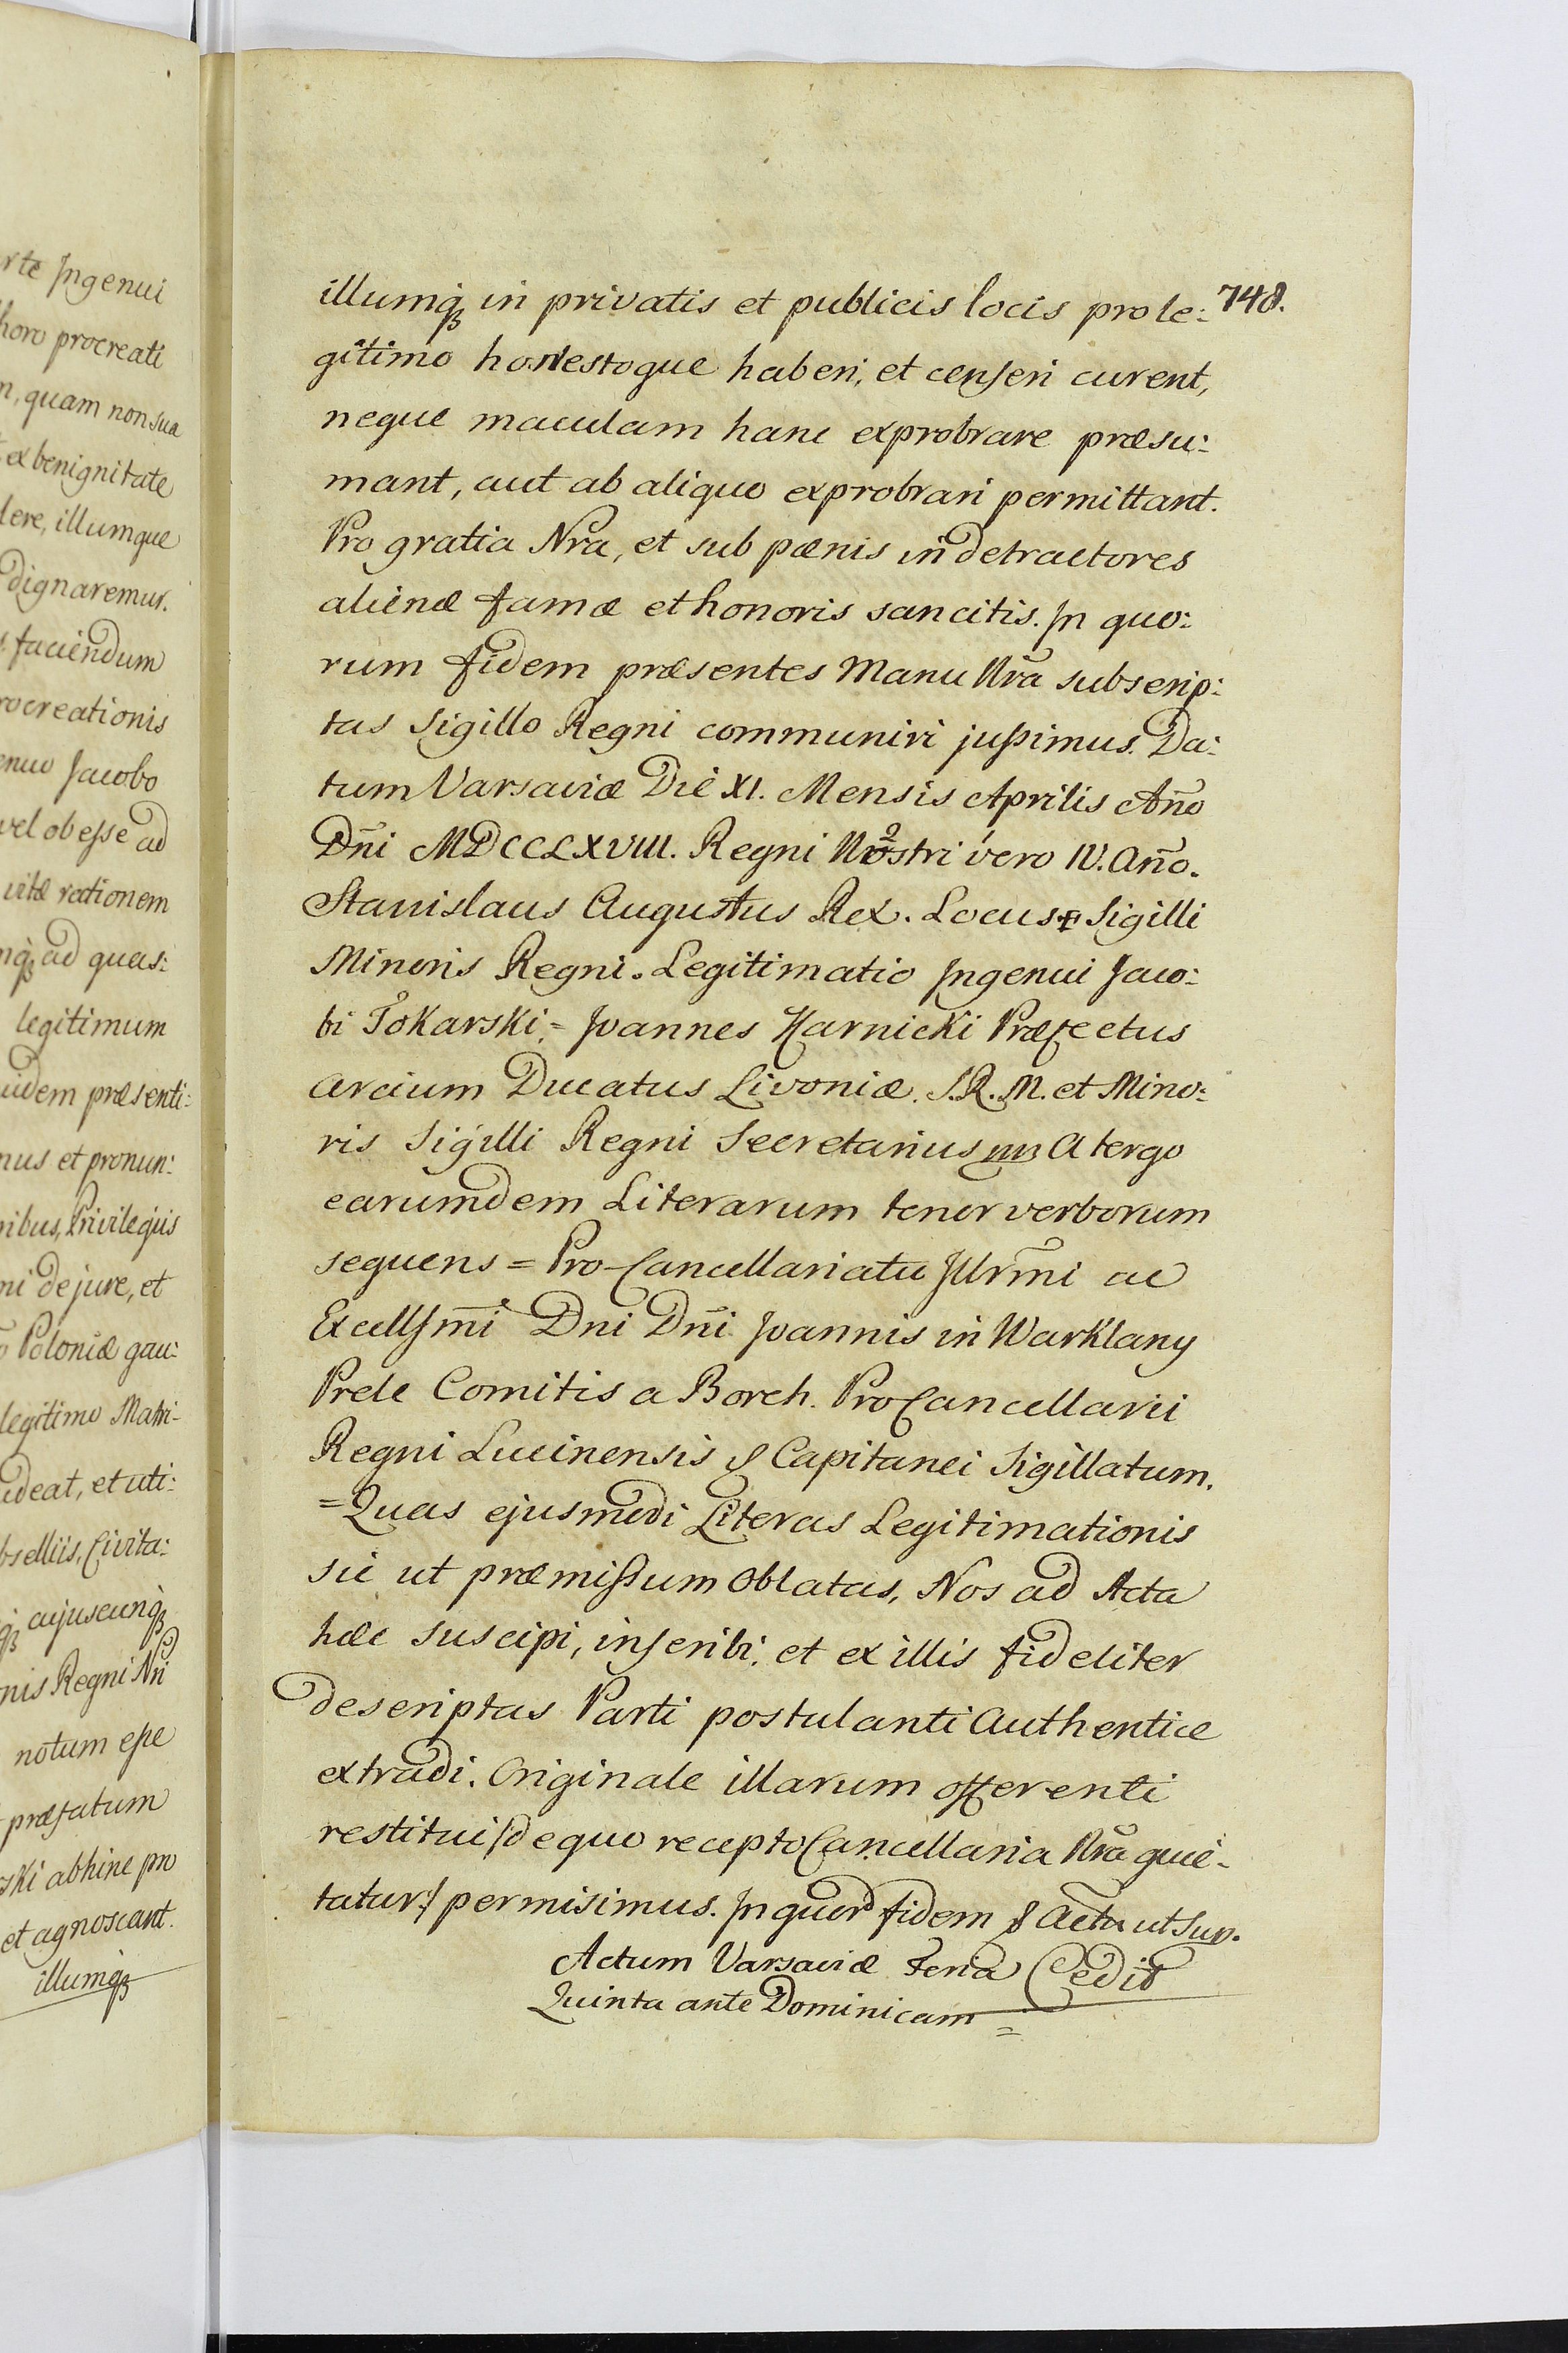 rte Ingenui
horo procreati
n, quam non sua
ex benignitate
dere, illumque
dignaremur.
faciendum
rocreationis
enuo Jacobo
vel obesse ad
vitæ rationem
nq̃ ad quas:
legitimum
uidem præsenti:
mus et pronun:
nibus, Privilegiis
ni de jure, et
Poloniæ gau:
legitimo Matri-
udeat, et uti:
bselliis, Civita:
cujuscunq̃
nis Regni Nri
notum esse
præfatum
ski abhinc pro
et agnoscant.
illumq̃
748.
illumq̃ in privatis et publicis locis pro le:
gitimo honestoque haberi, et censeri curent,
neque maculam hanc exprobrare præsu:
mant, aut ab aliquo exprobrari permittant.
Pro gratia Nrã, et sub pænis in detractores
alienæ famæ et honoris sancitis. In quo:
rum fidem præsentes Manu Nrã subscrip:
tas Sigillo Regni communiri jussimus. Da:
tum Varsaviæ Die XI. Mensis Aprilis Añno
Dñi MDCCLXVIII. Regni Nostri vero IV. Año.
Stanislaus Augustus Rex. Locus Sigilli
Minoris Regni. Legitimatio Ingenui Jaco:
bi Tokarski = Joannes Karnicki Præfectus
arcium Ducatus Livoniæ. S.R.M. et Mino:
ris Sigilli Regni Secretarius mp A tergo
earumdem Literarum tenor verborum
sequens = Pro-Cancellariatu Illrm̃i ac
Excellsm̃i Dni Dñi Joannis in Warklany
Prele Comitis a Borch. ProCancellarii
Regni Lucinensis & Capitanei Sigillatum.
= Quas ejusmodi Literas Legitimationis
sic ut præmissum Oblatas, Nos ad Acta
hæc suscipi, inscribi, et ex illis fideliter
descriptas Parti postulanti Authentice
extradi. Originale illarum offerenti
restitui /de quo recepto Cancellaria Nrã quie-
tatur/ permisimus. In quor fidem & Actũ ut Sup.
Actum Varsaviæ Feria Cedit
Quinta ante Dominicam =